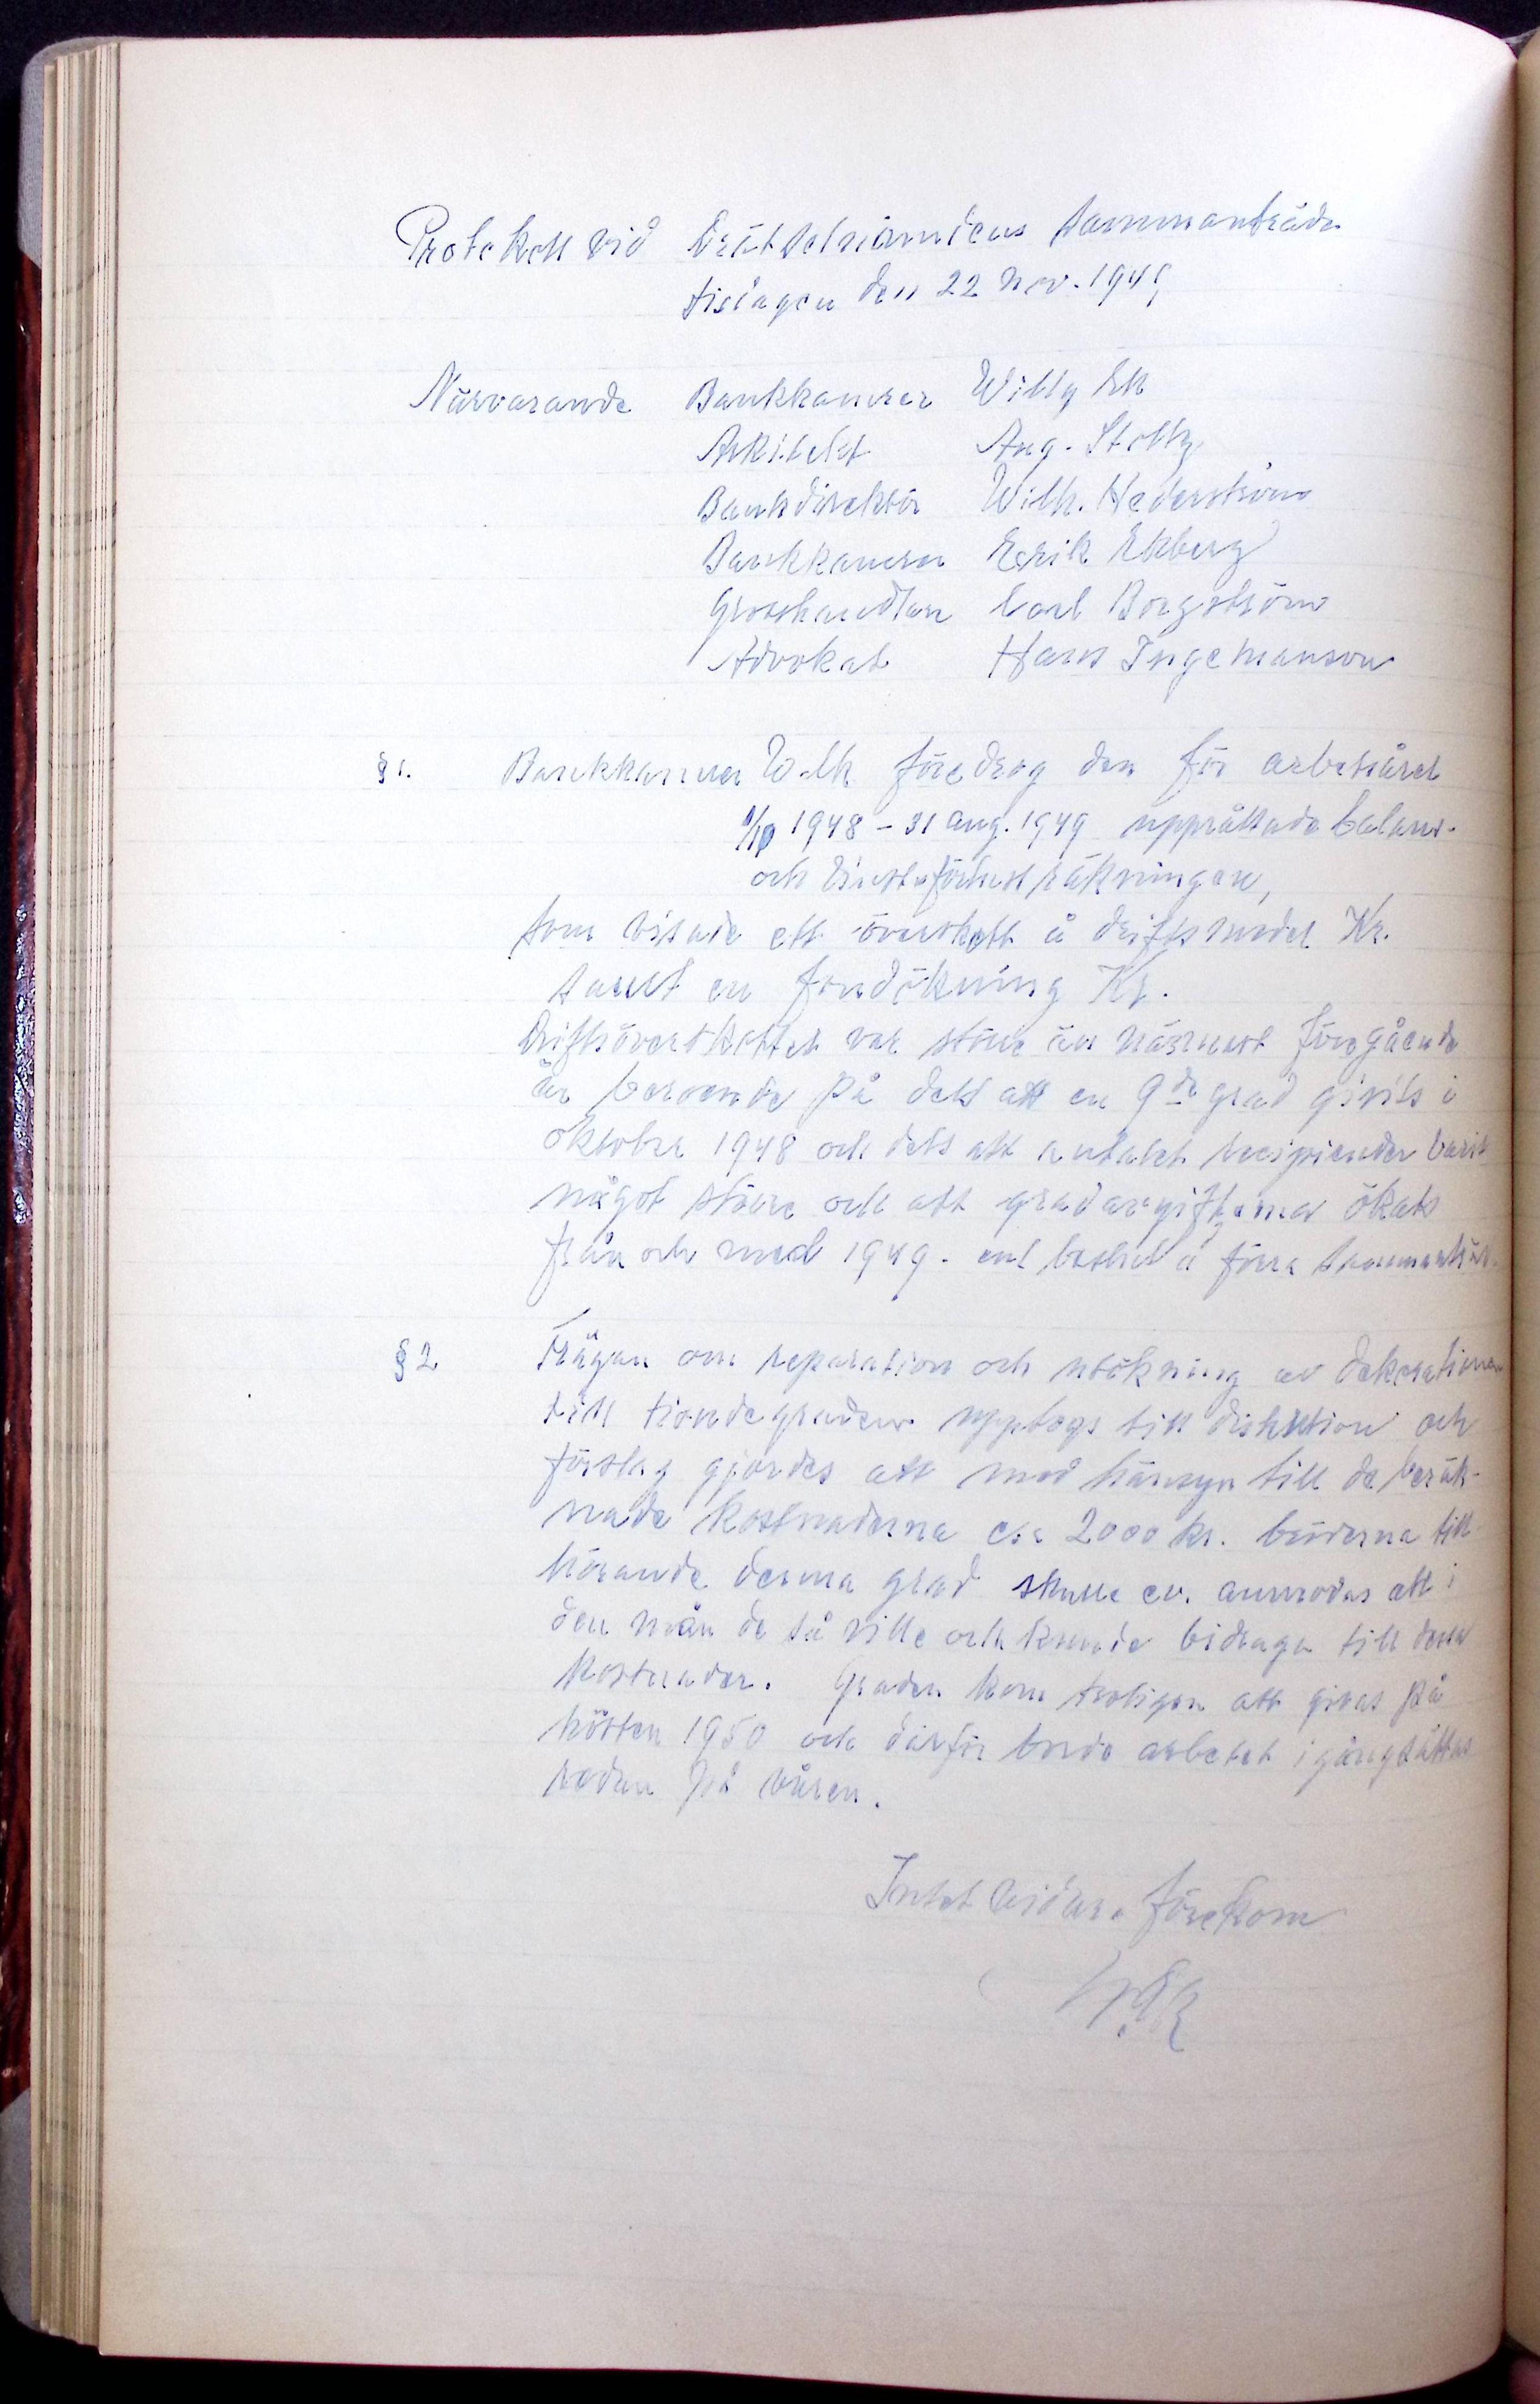 Protokoll vid Drätselnämndens sammanträde
tisdagen den 22 Nov. 1949
Närvarande Bankkamrer Willy Ek
Arkitekt Aug. Stoltz
Bankdirektör Wilh. Hederström
Bankkamrer Erik Ekberg
Grosshandlare Carl Borgström
Advokat Hans Ingemanson
§ 1. Bankkamrer W. Ek föredrog den för arbetsåret
1948 – 31 aug. 1949 upprättade balans-
och Vinst o förlust räkningen,
som visade ett överskott å driftsmedel Kr.
samt en fondökning Kr.
Driftsöverskottet var större än närmast föregående
år beroende på dels att en 9de grad givits i
oktober 1948 och dels att antalet recipiender varit
något större och att gradavgifterna ökats
från och med 1949. enl beslut å förra sammantr.
§ 2 Frågan om reparation och utökning av dekorationen
till tiondegraden upptogs till diskution och
förslag gjordes att med hänsyn till de beräk-
nade kostnaderna c:a 2000 kr. bröderna till-
hörande denna grad skulle ev. anmodas att i
den mån de så ville och kunde bidraga till dessa
kostnader. Graden kom troligen att givas på
hösten 1950 och därför borde arbetet igångsättas
redan på våren.
Intet vidare förekom
W. Ek